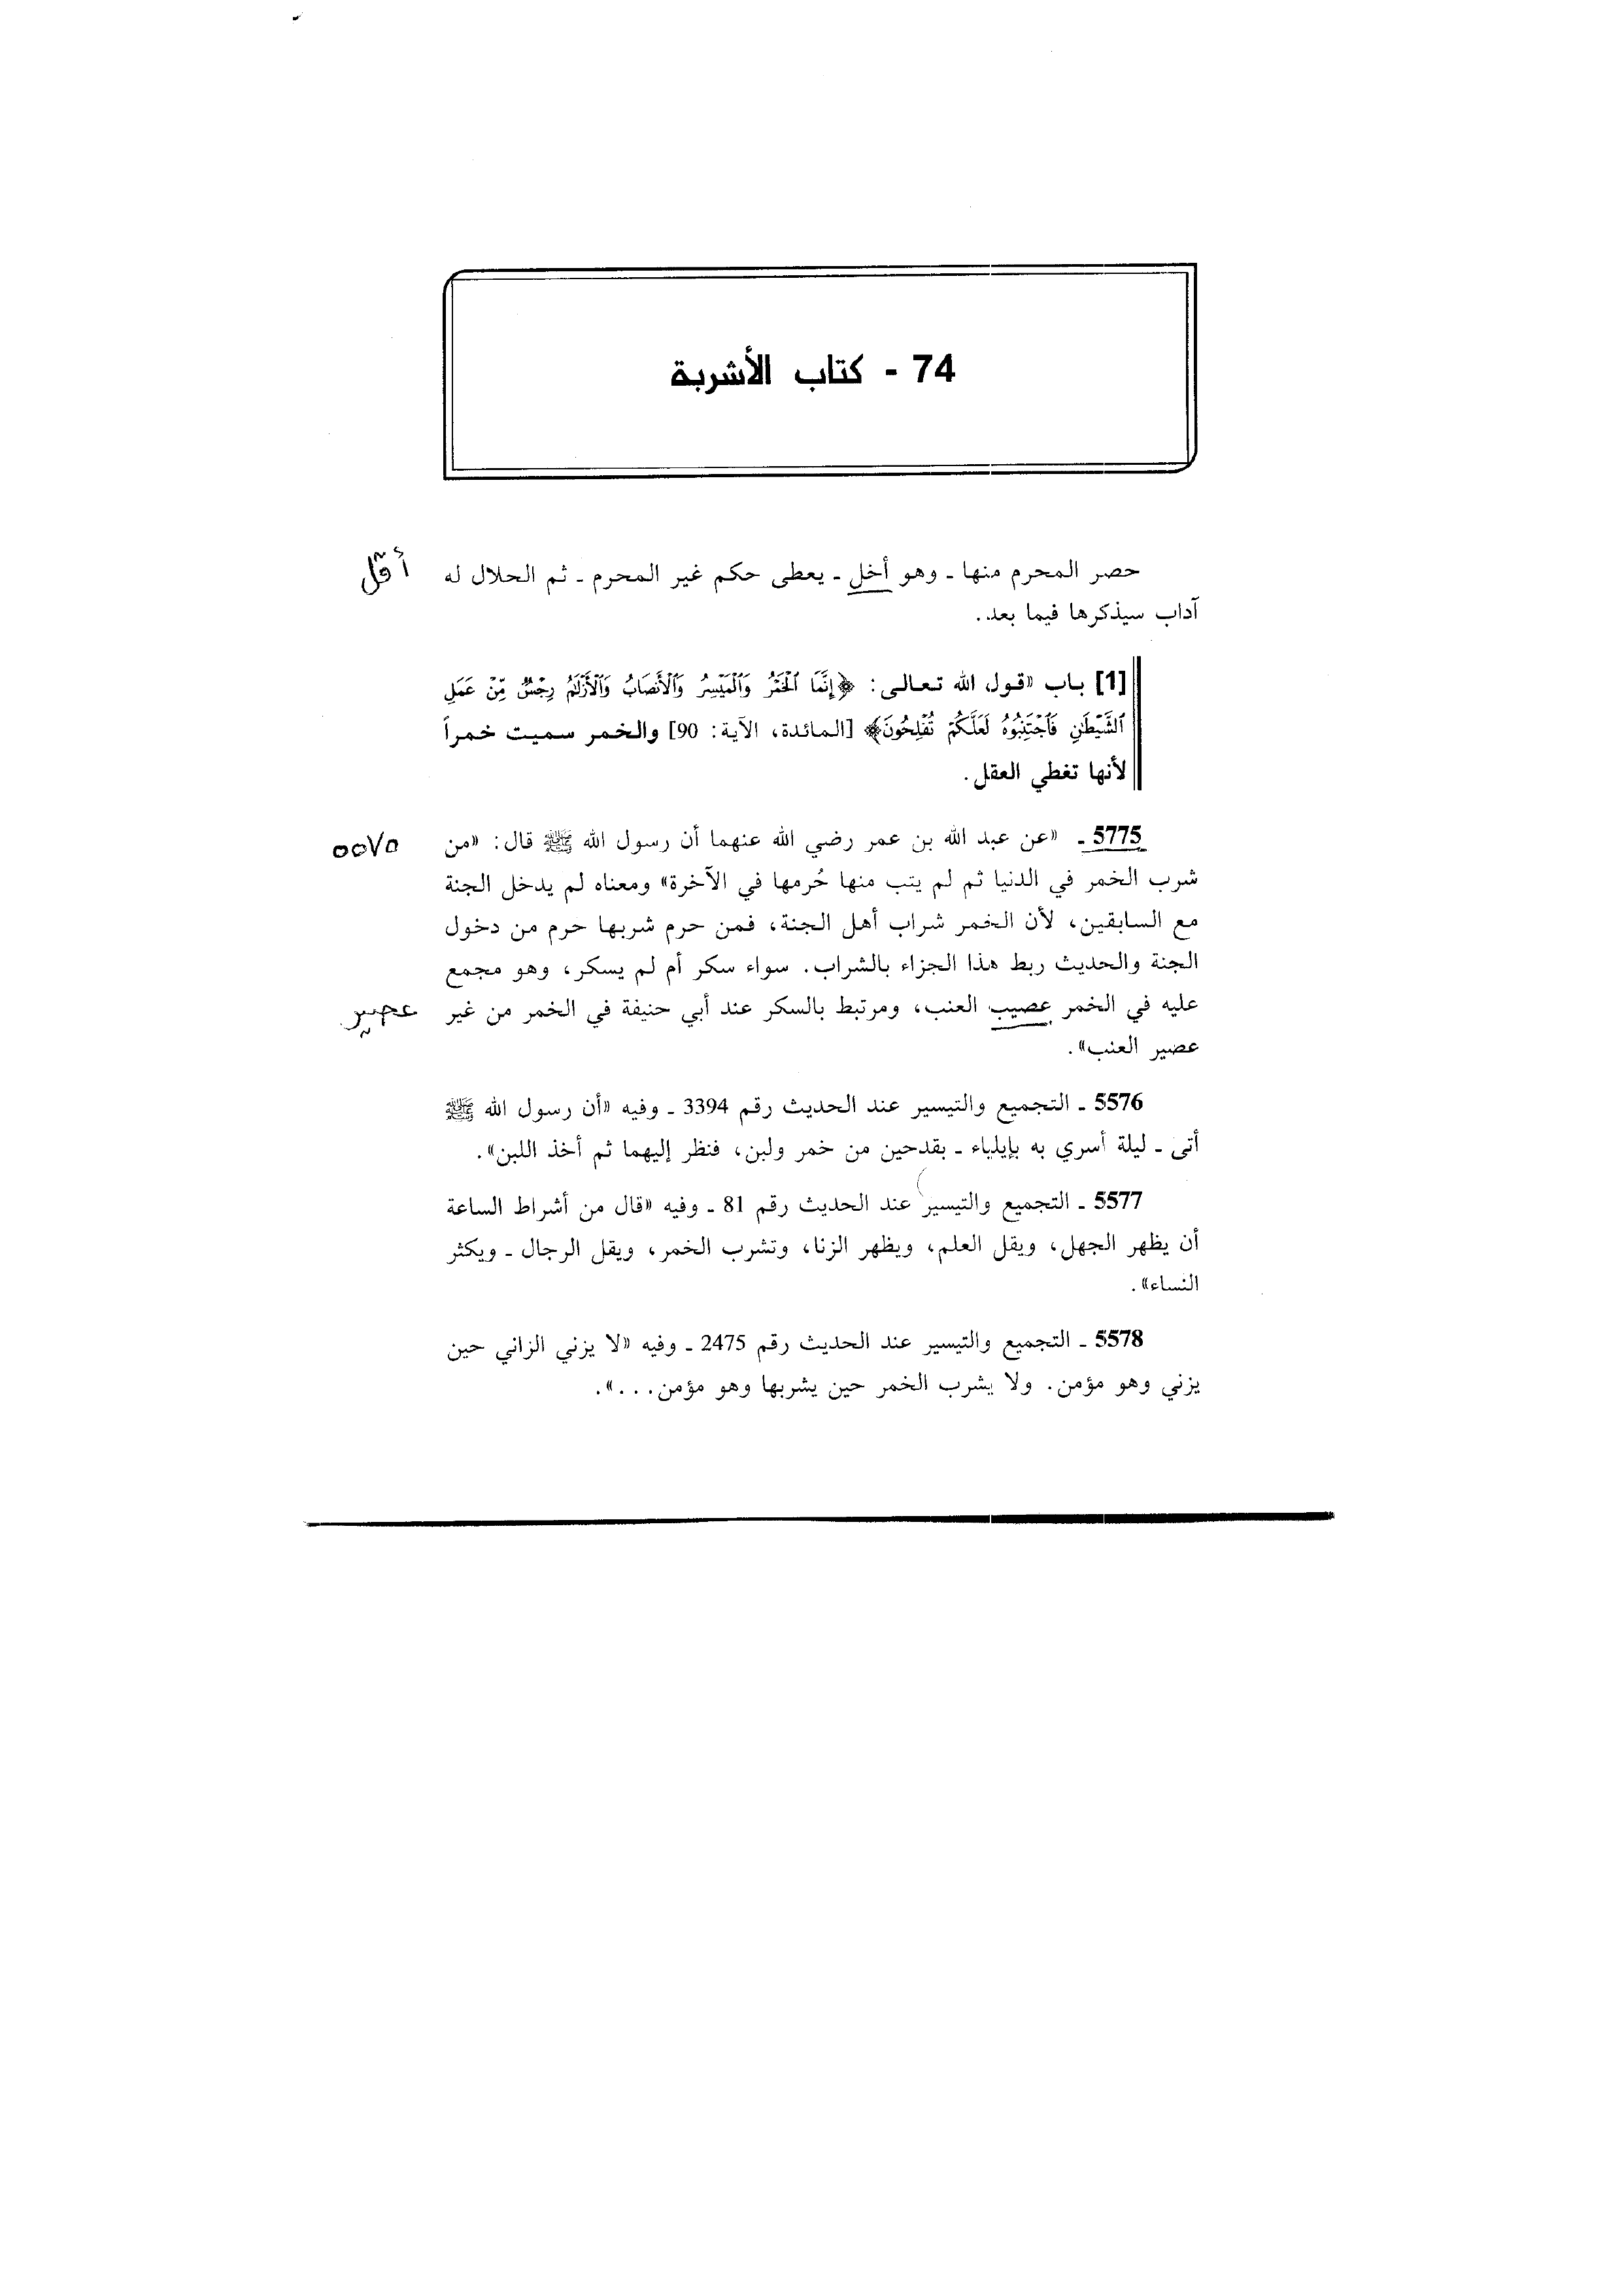 74 - كتاب الأشربة
حصر المحرم منها ـ وهو أخل ـ يعطى حكم غير المحرم ـ ثم الحلال له
أقل
آداب سيذكرها فيما بعد.
[1] باب «قول الله تعالى: ﴿إِنَّمَا ٱلْخَمْرُ وَٱلْمَيْسِرُ وَٱلْأَنصَابُ وَٱلْأَزْلَٰمُ رِجْسٌ مِّنْ عَمَلِ
ٱلشَّيْطَٰنِ فَٱجْتَنِبُوهُ لَعَلَّكُمْ تُفْلِحُونَ﴾ [المائدة، الآية: 90] والخمر سميت خمراً
لأنها تغطي العقل.
5775 ـ «عن عبد الله بن عمر رضي الله عنهما أن رسول الله ﷺ قال: «من
٥٥٧٥
شرب الخمر في الدنيا ثم لم يتب منها حُرمها في الآخرة» ومعناه لم يدخل الجنة
مع السابقين، لأن الخمر شراب أهل الجنة، فمن حرم شربها حرم من دخول
الجنة والحديث ربط هذا الجزاء بالشراب. سواء سكر أم لم يسكر، وهو مجمع
عليه في الخمر عصيب العنب، ومرتبط بالسكر عند أبي حنيفة في الخمر من غير
عصير
عصير العنب».
5576 ـ التجميع والتيسير عند الحديث رقم 3394 ـ وفيه «أن رسول الله ﷺ
أتى ـ ليلة أسري به بإيلياء ـ بقدحين من خمر ولبن، فنظر إليهما ثم أخذ اللبن».
5577 ـ التجميع والتيسير عند الحديث رقم 81 ـ وفيه «قال من أشراط الساعة
أن يظهر الجهل، ويقل العلم، ويظهر الزنا، وتشرب الخمر، ويقل الرجال ـ ويكثر
النساء».
5578 ـ التجميع والتيسير عند الحديث رقم 2475 ـ وفيه «لا يزني الزاني حين
يزني وهو مؤمن. ولا يشرب الخمر حين يشربها وهو مؤمن...».